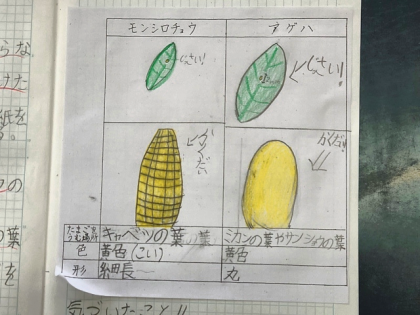 モンシロチョウ
アゲハ
じっさい!
じっさい!
かくだい
かくだい!
たまごをうむ場所
キャベツの葉
ミカンの葉やサンショウの葉
色
黄色(こい)
黄色
形
細長〜
丸
気づいたこと!!
らな
けた
紙を
る。
の
葉
を